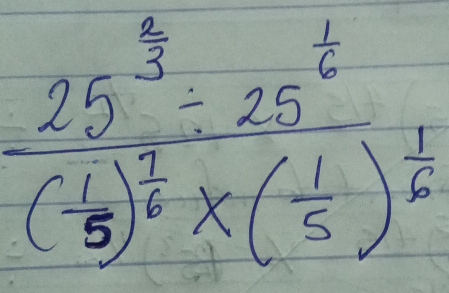 25^{2/3} ÷ 25^{1/6}
(1/5)^{7/6} × (1/5)^{1/6}